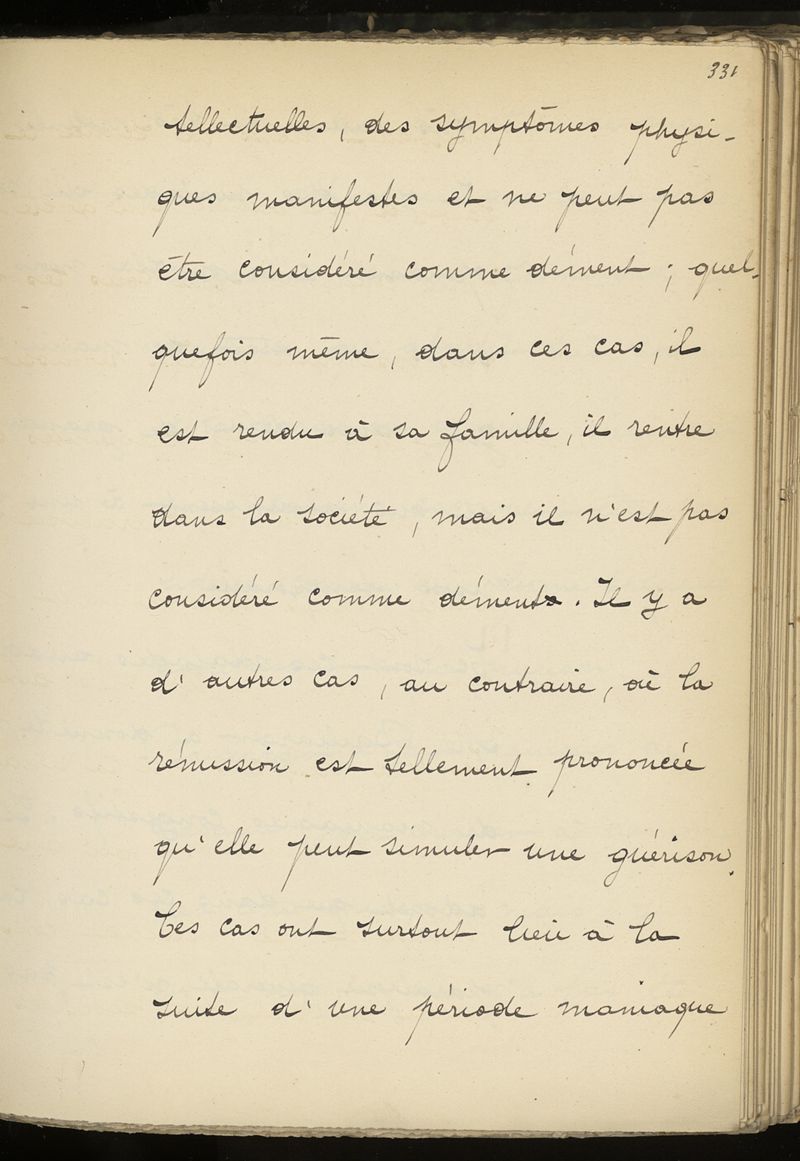 331
tellectuelles, des symptômes physi-
ques manifestes et ne peut pas
être considéré comme dément ; quel-
quefois même, dans ces cas, il
est rendu à sa famille, il rentre
dans la société, mais il n'est pas
considéré comme dément. Il y a
d'autres cas, au contraire, où la
rémission est tellement prononcée
qu'elle peut simuler une guérison.
Ces cas ont surtout lieu à la
suite d'une période maniaque